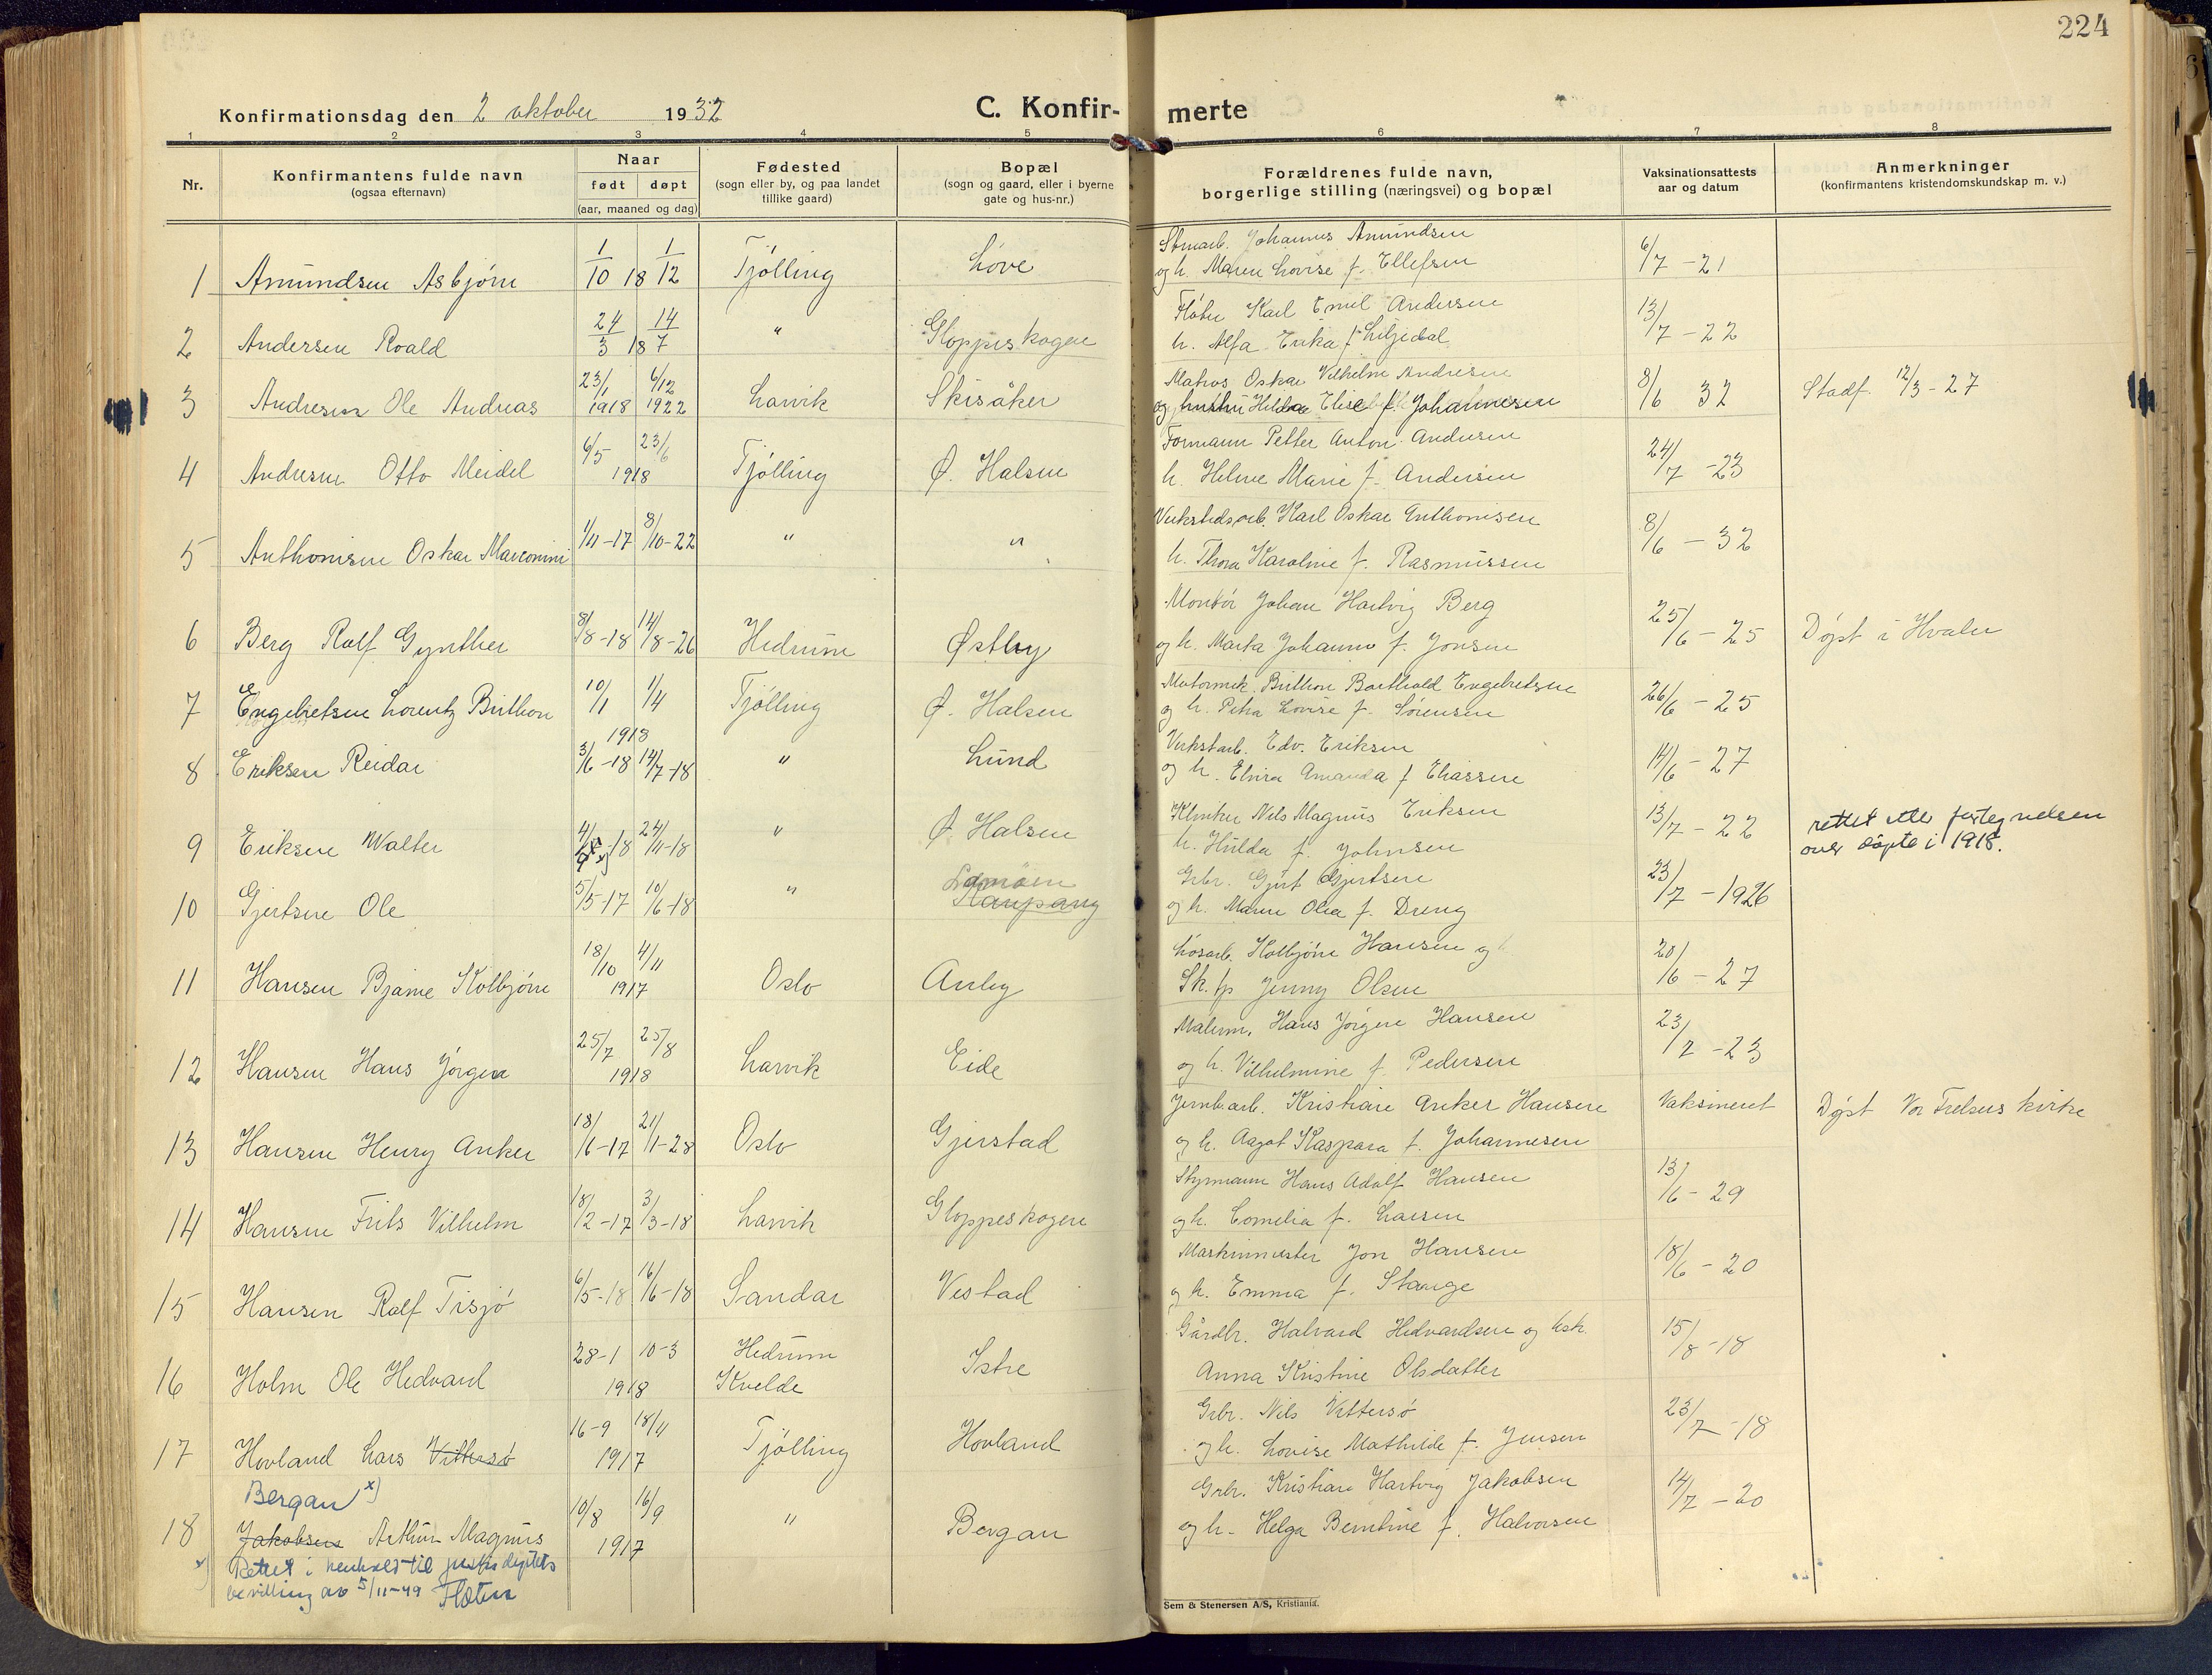 224
Konfirmationsdag den 2 oktober 1932
C. Konfirmerte
1 2 3 4 5 6 7 8
Nr.
Konfirmantens fulde navn
(ogsaa efternavn)
Naar
født døpt
(aar, maaned og dag)
Fødested
(sogn eller by, og paa landet
tillike gaard)
Bopæl
(sogn og gaard, eller i byerne
gate og hus-nr.)
Forældrenes fulde navn,
borgerlige stilling (næringsvei) og bopæl
Vaksinationsattests
aar og datum
Anmerkninger
(konfirmantens kristendomskundskap m. v.)
1 Amundsen Asbjørn 1/10 18 1/12 Tjølling Løve
Johannes Amundsen
og h. Maren Lovise f. Ellefsen 6/7 - 21
2 Andersen Roald 24/3 18 14/7 " Gloppeskogen
Fløter Karl Emil Andersen
h. Alfa Erika f. Liljedal 13/7 - 22
3 Andresen Ole Andreas 23/1 1918 6/12 1922 Larvik Skisåker
Matros Oskar Vilhelm Andresen
og hustru Hilda Elise f. Johannesen 8/6 32 Stadf. 12/3 - 27
4 Andresen Otto Meidel 6/5 23/6 1918 Tjølling Ø. Halsen
Formann Petter Anton Andersen
h. Helene Marie f. Andersen 24/7 - 23
5 Anthonisen Oskar Marconini 1/11 - 17 8/10 - 22 " "
Verkstedsarb. Karl Oskar Anthonisen
h. Thora Karoline f. Rasmussen 8/6 - 32
6 Berg Rolf Gynther 8/8 - 18 14/8 - 26 Hedrum Østby
Montør Johan Hartvig Berg
og h. Marta Johanne f. Jonsen 25/6 - 25 Døpt i Hvaler
7 Engebretsen Lorentz Brithon 10/1 1/4 1918 Tjølling Ø. Halsen
Motormek. Brithon Barthold Engebretsen
og h. Petra Lovise f. Sørensen 26/6 - 25
8 Eriksen Reidar 3/6 - 18 14/7 - 18 " Lund
Verkstarb. Edv. Eriksen
og h. Elvira Amanda f. Eliassen 14/6 - 27
9 Eriksen Walter 4/9 - 18 24/11 - 18 " Ø. Halsen
Klinker Nils Magnus Eriksen
h. Hulda f. Johnsen 13/7 - 22
rettet etter fortegnelsen
over døpte i 1918.
10 Gjertsen Ole 5/5 - 17 10/6 - 18 " Kaupang
Grbr. Gjert Gjertsen
og h. Maren Olea f. Dreng 23/7 - 1926
11 Hansen Bjarne Kolbjørn 18/10 4/11 1917 Oslo Auby
Løsarb. Kolbjørn Hansen og
Sk. fr Jenny Olsen 20/6 - 27
12 Hansen Hans Jørgen 25/7 25/8 1918 Larvik Eide
Malerm. Hans Jørgen Hansen
og h. Vilhelmine f. Pedersen 23/7 - 23
13 Hansen Henry Anker 18/6 - 17 21/1 - 28 Oslo Gjerstad
Jernb.arb. Kristian Anker Hansen
og h. Aagot Kaspara f. Johannesen Vaksineret Døpt Vor Frelsers kirke
14 Hansen Frits Vilhelm 18/2 - 17 3/3 - 18 Larvik Gloppeskogen
Styrmann Hans Adolf Hansen
og h. Cornelia f. Larsen 13/6 - 29
15 Hansen Rolf Tisjø 6/5 - 18 16/6 - 18 Sandar Vestad
Maskinmester Jon Hansen
og h. Emma f. Stange 18/6 - 20
16 Holm Ole Hedvard 28-1 10-3 1918 Hedrum Kvelde Istre
Gårdbr. Halvard Hedvardsen og hsk.
Anna Kristine Olsdatter 15/8 - 18
17 Hovland Lars Vittersø 16-9 18/11 1917 Tjølling Hovland
Grbr. Nils Vittersø
og h. Lovise Mathilde f. Jensen 23/7 - 18
Bergan x)
18 Jakobsen Arthur Magnus 10/8 16/9 1917 " Bergan
Grbr. Kristian Hartvig Jakobsen
og h. Helga Berntine f. Halvorsen 14/7 - 20
x) Rettet i henhold til justisdeptets
bevilling av 5/11-49 Fløten
Sem & Stenersen A/S, Kristiania.